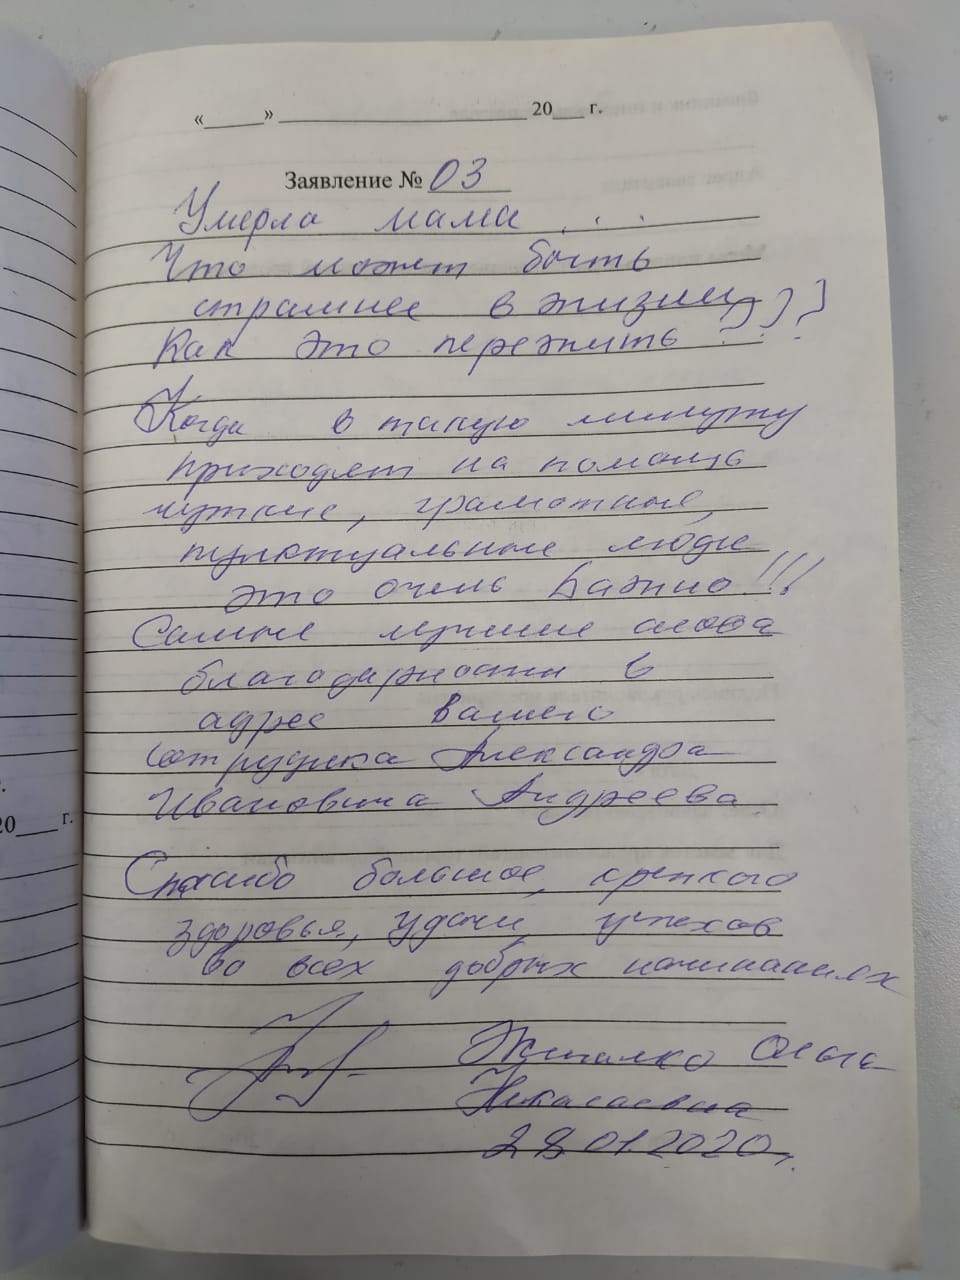 «____» ____________ 20___ г.
Заявление № 03
Умерла мама . . .
Что может быть
страшнее в жизни
Как это пережить ???
Когда в такую минуту
приходят на помощь
чуткие, грамотные,
пунктуальные люди
это очень важно!!!
Самые лучшие слова
благодарности в
адрес вашего
сотрудника Александра
Ивановича Андреева
Спасибо большое, крепкого
здоровья, удачи, успехов
во всех добрых начинаниях
Ольга
Николаевна
28.01.2020г.
20___ г.